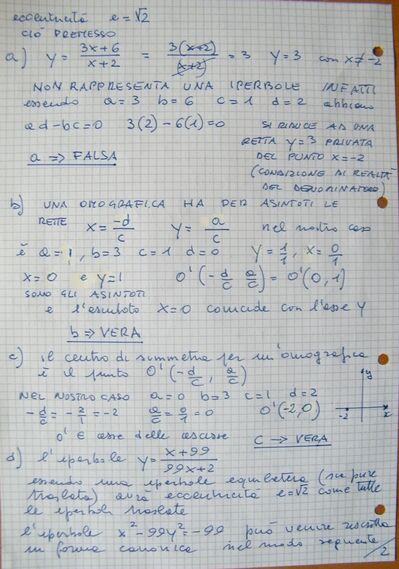 eccentricità e = √2
CIÒ PREMESSO
a) y = 3x+6 / x+2 = 3(x+2) / (x+2) = 3 y = 3 con x ≠ -2
NON RAPPRESENTA UNA IPERBOLE INFATTI
essendo a = 3 b = 6 c = 1 d = 2 abbiamo
ad - bc = 0 3(2) - 6(1) = 0 SI RIDUCE AD UNA
RETTA y = 3 PRIVATA
DEL PUNTO x = -2
(CONDIZIONE DI REALTÀ
DEL DENOMINATORE)
a ⇒ FALSA
b) UNA OMOGRAFICA HA PER ASINTOTI LE
RETTE x = -d/c y = a/c nel nostro caso
è a = 1, b = 3 c = 1 d = 0 y = 1/1, x = 0/1
x = 0 e y = 1 O'(-d/c a/c) = O'(0, 1)
SONO GLI ASINTOTI
e l'asintoto x = 0 coincide con l'asse y
b ⇒ VERA
c) il centro di simmetria per un'omografica
è il punto O'(-d/c, a/c)
NEL NOSTRO CASO a = 0 b = 3 c = 1, d = 2
-d/c = -2/1 = -2 a/c = 0/1 = 0 O'(-2,0)
y
x
-2
O' ∈ asse delle ascisse
C ⇒ VERA
d) l'iperbole y = x+99 / 99x+2
essendo una iperbole equilatera (sia pure
traslata) avrà eccentricità e = √2 come tutte
le iperboli traslate
l'iperbole x² - 99y² = -99 può venire riscritta
in forma canonica nel modo seguente
/2